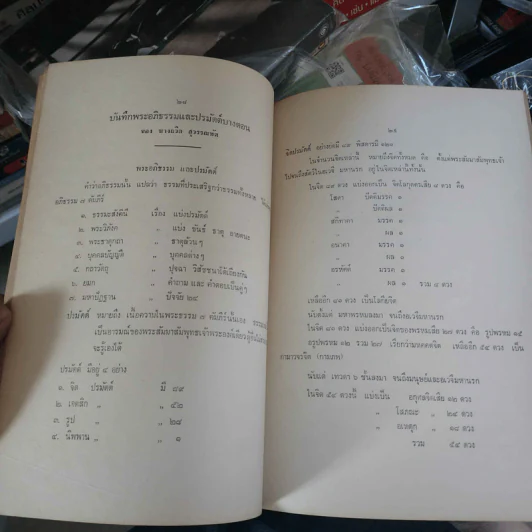 ๒๘
บันทึกพระอภิธรรมและปรมัตถ์บางตอน
ของ นายเกริก สุวรรณทัต
พระอภิธรรม และปรมัตถ์
คำว่าอภิธรรมนั้น แปลว่า ธรรมที่ประเสริฐกว่าธรรมทั้งหลาย
อภิธรรม ๗ คัมภีร์
๑. ธรรมสังคิณี เรื่อง แบ่งปรมัตถ์
๒. พระวิภังค „ แบ่ง ขันธ์ ธาตุ อายตนะ
๓. พระธาตุกถา „ ธาตุล้วนๆ
๔. บุคคลบัญญัติ „ บุคคลต่างๆ
๕. กถาวัตถุ „ ปุจฉา วิสัชนาโต้เถียงกัน
๖. ยมก „ คำถาม และ คำตอบเป็นคู่ๆ
๗. มหาปัฏฐาน „ ปัจจัย ๒๔
ปรมัตถ์ หมายถึง เนื้อความในพระธรรม ๗ คัมภีร์นั้นเอง
เป็นอารมณ์ของพระสัมมาสัมพุทธเจ้า
จะรู้เองได้
ปรมัตถ์ มีอยู่ ๔ อย่าง
๑. จิต ปรมัตถ์ มี ๘๙
๒. เจตสิก „ „ ๕๒
๓. รูป „ „ ๒๘
๔. นิพพาน „ „ ๑
๒๙
จิตปรมัตถ์ อย่างย่อมี ๘๙ พิสดารมี ๑๒๑
ในจำนวนจิตเหล่านี้ หมายถึงจิตทั้งหมด คือ ตั้งแต่พระสัมมาสัมพุทธเจ้า
ไปจนถึงสัตว์ในอเวจี มหานรก อยู่ในจิตเหล่านี้ทั้งนั้น
ในจิต ๘๙ ดวง แบ่งออกเป็น จิตโลกุตรเสีย ๘ ดวง คือ
โสดา ปัตติมรรค ๑
„ ปัตติผล ๑
สกิทาคา มรรค ๑
„ ผล ๑
อนาคา มรรค ๑
„ ผล ๑
อรหัตต์ มรรค ๑
„ ผล ๑ รวม ๘ ดวง
เหลืออีก ๘๑ ดวง เป็นโลกียจิต
นับตั้งแต่ มหาพรหมลงมา จนถึงอเวจีมหานรก
ในจิต ๘๑ ดวง แบ่งออกเป็นจิตของพรหมเสีย ๒๗ ดวง คือ รูปพรหม ๑๕
อรูปพรหม ๑๒ รวม ๒๗ เรียกว่ามหคตจิต เหลืออีก ๕๔ ดวง เป็น
กามาวจรจิต (กามภพ)
นับแต่ เทวดา ๖ ชั้นลงมา จนถึงมนุษย์และอเวจีมหานรก
ในจิต ๕๔ ดวงนี้ แบ่งเป็น อกุศลจิตเสีย ๑๒ ดวง
„ โสภณะ „ ๒๔ ดวง
„ อเหตุก „ ๑๘ ดวง
รวม ๕๔ ดวง